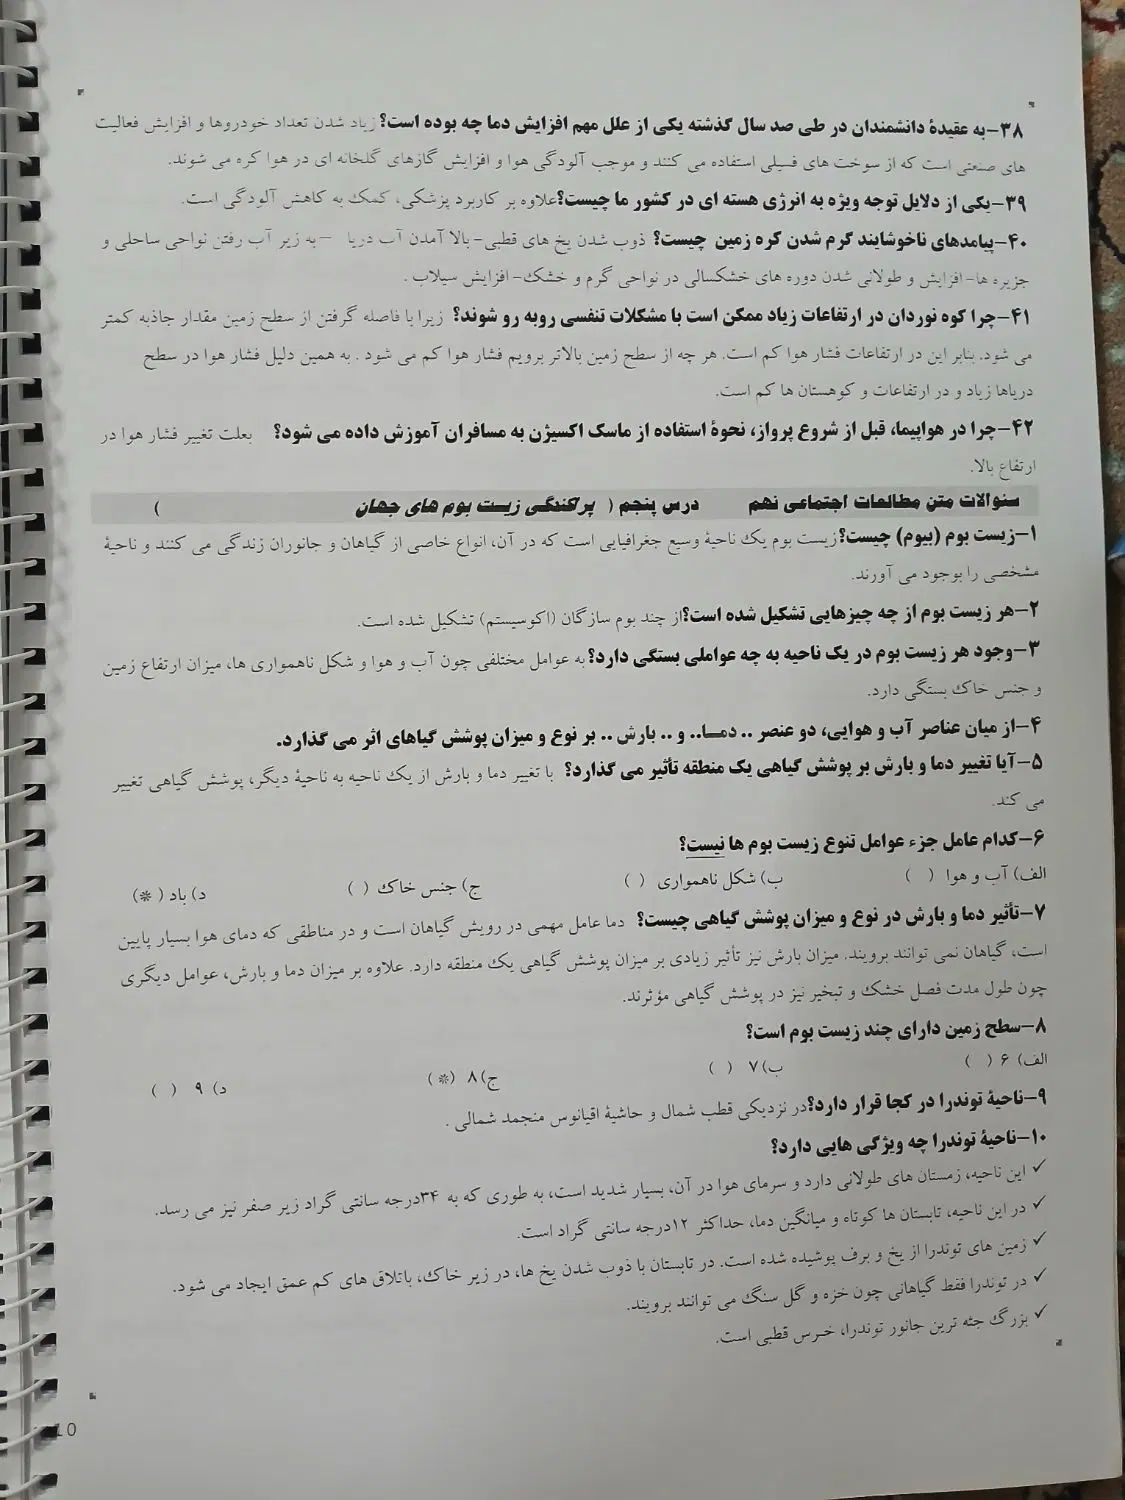 ۳۸-به عقیدهٔ دانشمندان در طی صد سال گذشته یکی از علل مهم افزایش دما چه بوده است؟ زیاد شدن تعداد خودروها و افزایش فعالیت
های صنعتی است که از سوخت های فسیلی استفاده می کنند و موجب آلودگی هوا و افزایش گازهای گلخانه ای در هوا کره می شوند.
۳۹-یکی از دلایل توجه ویژه به انرژی هسته ای در کشور ما چیست؟علاوه بر کاربرد پزشکی، کمک به کاهش آلودگی است.
۴۰-پیامدهای ناخوشایند گرم شدن کره زمین چیست؟ ذوب شدن یخ های قطبی- بالا آمدن آب دریا – به زیر آب رفتن نواحی ساحلی و
جزیره ها- افزایش و طولانی شدن دوره های خشکسالی در نواحی گرم و خشک- افزایش سیلاب .
۴۱-چرا کوه نوردان در ارتفاعات زیاد ممکن است با مشکلات تنفسی روبه رو شوند؟ زیرا با فاصله گرفتن از سطح زمین مقدار جاذبه کمتر
می شود. بنابر این در ارتفاعات فشار هوا کم است. هر چه از سطح زمین بالاتر برویم فشار هوا کم می شود . به همین دلیل فشار هوا در سطح
دریاها زیاد و در ارتفاعات و کوهستان ها کم است.
۴۲-چرا در هواپیما، قبل از شروع پرواز، نحوهٔ استفاده از ماسک اکسیژن به مسافران آموزش داده می شود؟ بعلت تغییر فشار هوا در
ارتفاع بالا.
سئوالات متن مطالعات اجتماعی نهم درس پنجم ( پراکندگی زیست بوم های جهان )
۱-زیست بوم (بیوم) چیست؟زیست بوم یک ناحیهٔ وسیع جغرافیایی است که در آن، انواع خاصی از گیاهان و جانوران زندگی می کنند و ناحیهٔ
مشخصی را بوجود می آورند.
۲-هر زیست بوم از چه چیزهایی تشکیل شده است؟از چند بوم سازگان (اکوسیستم) تشکیل شده است.
۳-وجود هر زیست بوم در یک ناحیه به چه عواملی بستگی دارد؟به عوامل مختلفی چون آب و هوا و شکل ناهمواری ها، میزان ارتفاع زمین
و جنس خاک بستگی دارد.
۴-از میان عناصر آب و هوایی، دو عنصر .. دمــا.. و .. بارش .. بر نوع و میزان پوشش گیاهای اثر می گذارد.
۵-آیا تغییر دما و بارش بر پوشش گیاهی یک منطقه تأثیر می گذارد؟ با تغییر دما و بارش از یک ناحیه به ناحیهٔ دیگر، پوشش گیاهی تغییر
می کند.
۶-کدام عامل جزء عوامل تنوع زیست بوم ها نیست؟
الف) آب و هوا ( ) ب) شکل ناهمواری ( ) ج) جنس خاک ( ) د) باد ( * )
۷-تأثیر دما و بارش در نوع و میزان پوشش گیاهی چیست؟ دما عامل مهمی در رویش گیاهان است و در مناطقی که دمای هوا بسیار پایین
است، گیاهان نمی توانند برویند. میزان بارش نیز تأثیر زیادی بر میزان پوشش گیاهی یک منطقه دارد. علاوه بر میزان دما و بارش، عوامل دیگری
چون طول مدت فصل خشک و تبخیر نیز در پوشش گیاهی مؤثرند.
۸-سطح زمین دارای چند زیست بوم است؟
الف) ۶ ( ) ب) ۷ ( ) ج) ۸ ( * ) د) ۹ ( )
۹-ناحیهٔ توندرا در کجا قرار دارد؟در نزدیکی قطب شمال و حاشیهٔ اقیانوس منجمد شمالی .
۱۰-ناحیهٔ توندرا چه ویژگی هایی دارد؟
✓ این ناحیه، زمستان های طولانی دارد و سرمای هوا در آن، بسیار شدید است، به طوری که به ۳۴درجه سانتی گراد زیر صفر نیز می رسد.
✓ در این ناحیه، تابستان ها کوتاه و میانگین دما، حداکثر ۱۲درجه سانتی گراد است.
✓ زمین های توندرا از یخ و برف پوشیده شده است. در تابستان با ذوب شدن یخ ها، در زیر خاک، باتلاق های کم عمق ایجاد می شود.
✓ در توندرا فقط گیاهانی چون خزه و گل سنگ می توانند برویند.
✓ بزرگ جثه ترین جانور توندرا، خـرس قطبی است.
10